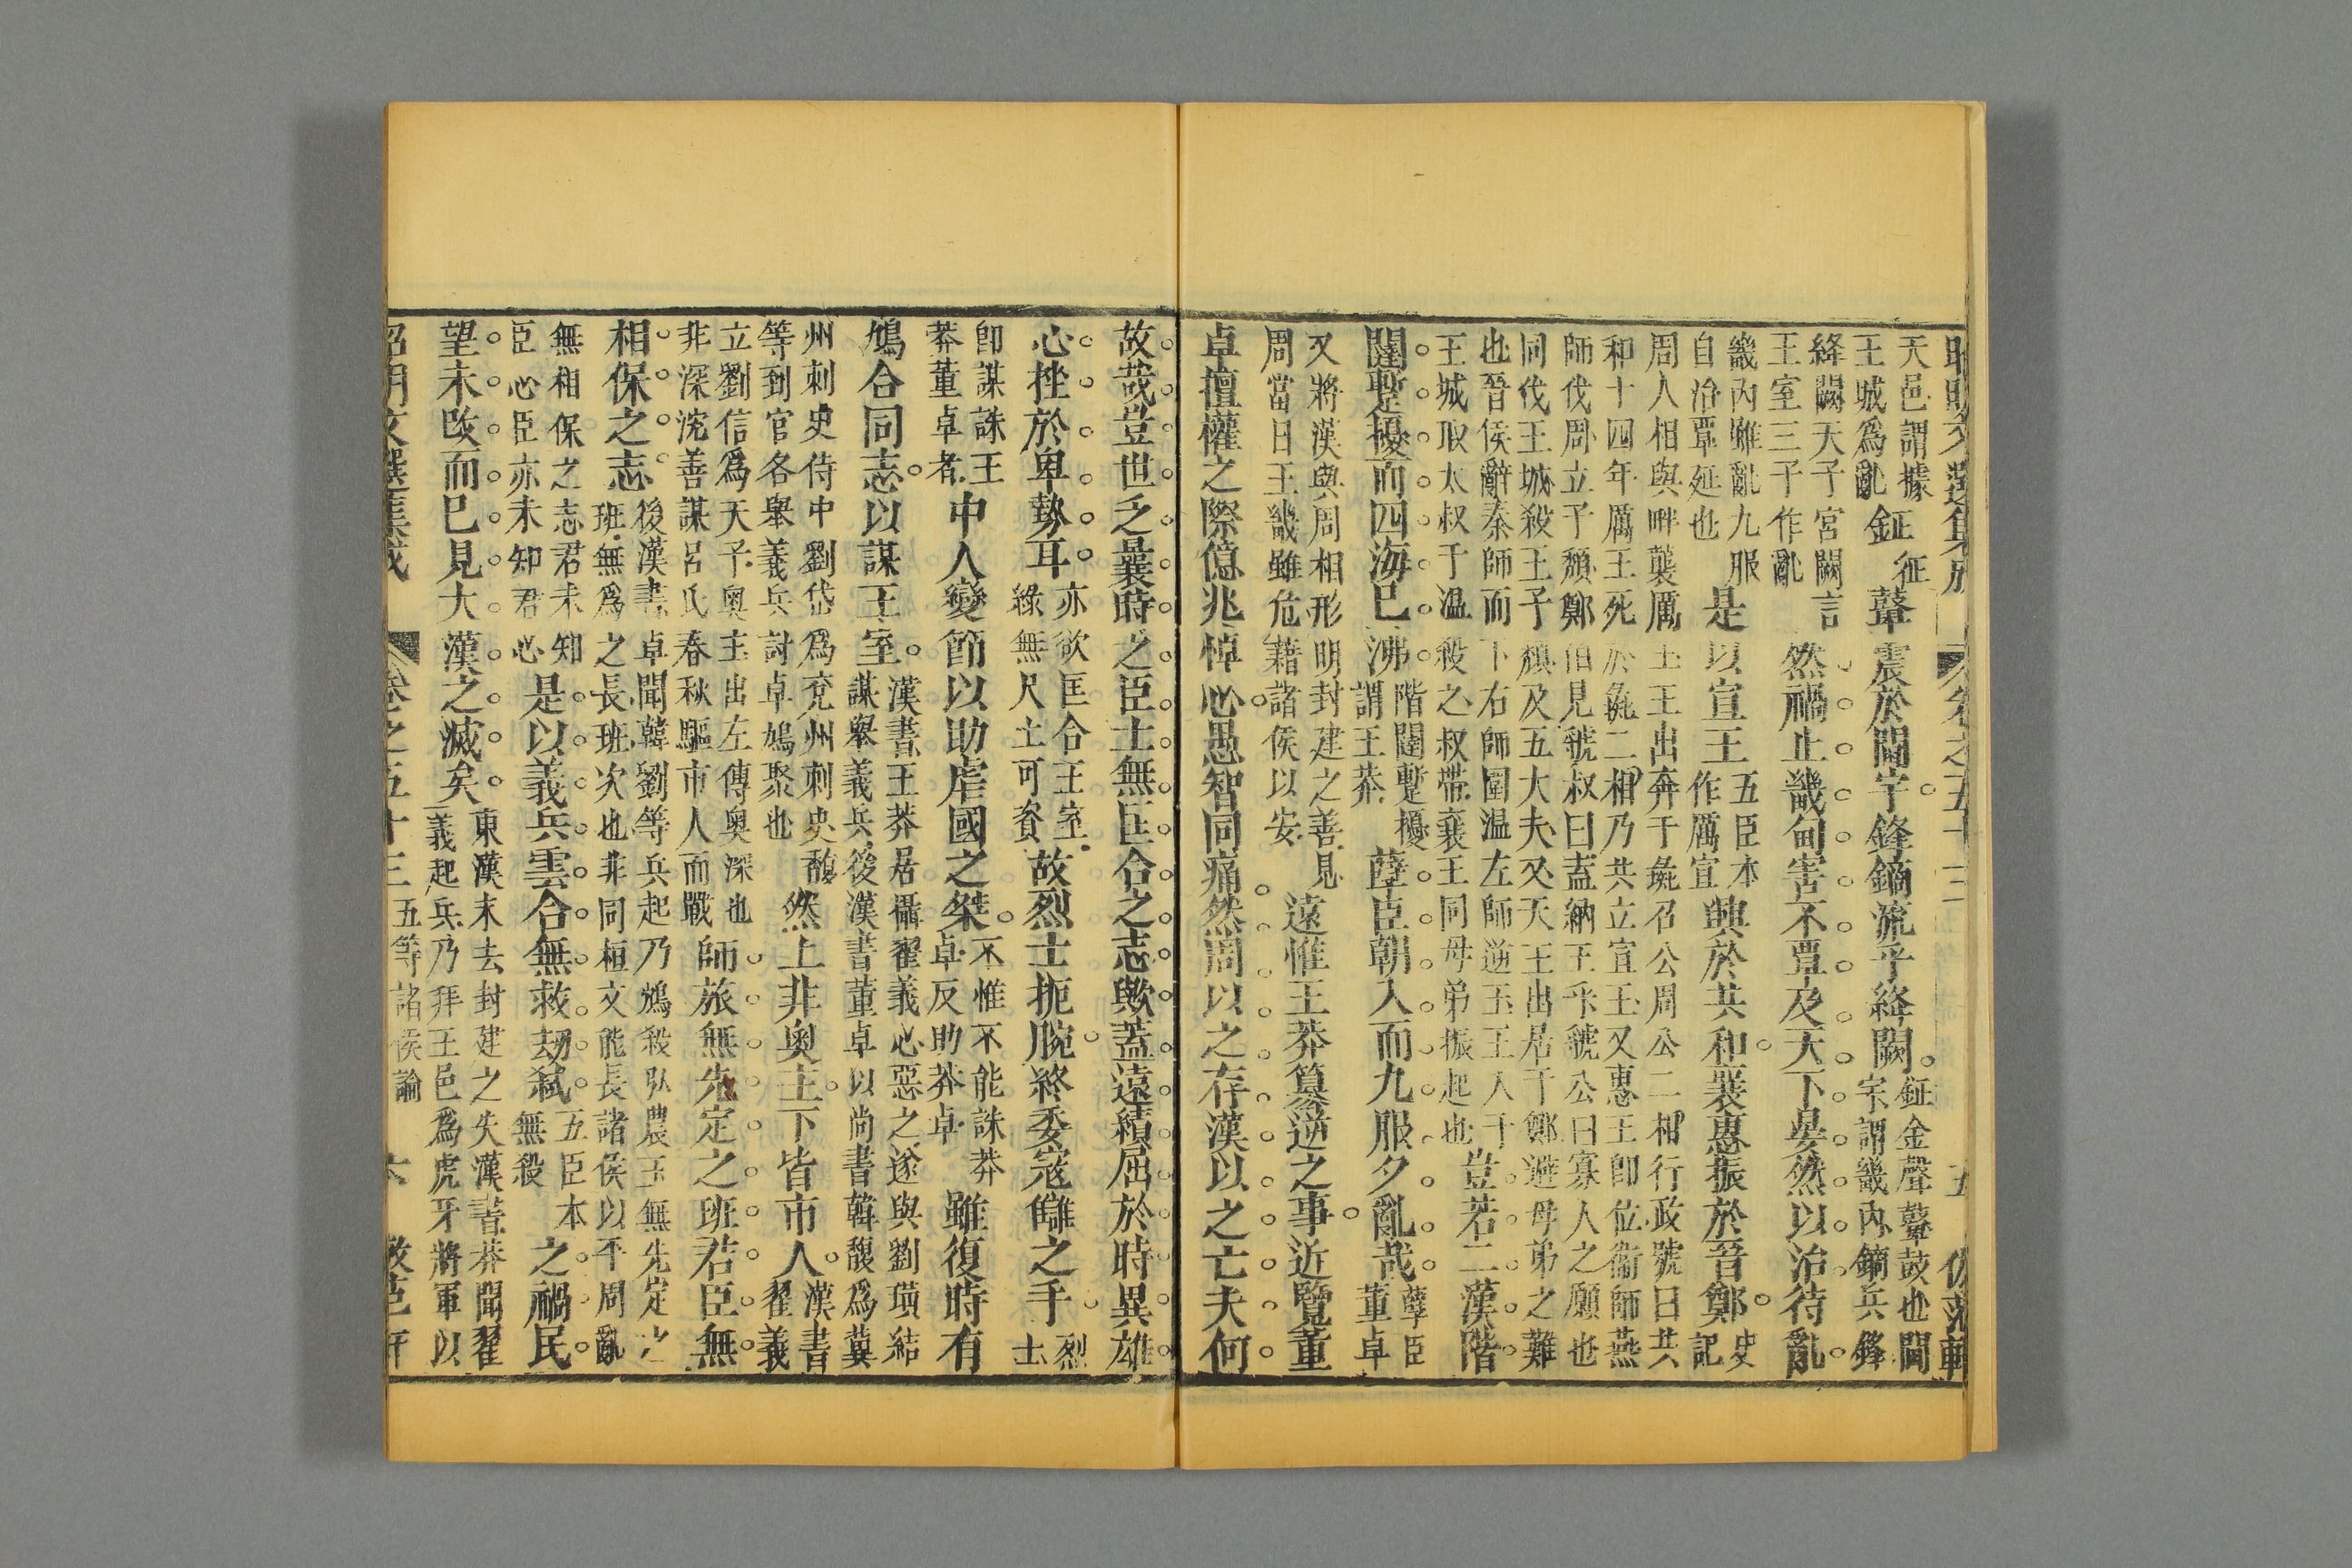 昭明文選集成 卷之五十三 五 仿范軒
天邑謂據王城爲亂鉦征鼙震於閫宇鋒鏑流乎絳闕鉦金聲鼙鼓也閫宇謂畿內鏑兵鋒
絳闕天子宮闕言王室三子作亂然禍止畿甸害不覃及天下晏然以治待亂
畿內雖亂九服自治覃延也是以宣王五臣本作厲宣興於共和襄惠振於晉鄭史記
周人相與畔襲厲王王出奔于彘召公周公二相行政號曰共
和十四年厲王死於彘二相乃共立宣王又惠王卽位衞師燕
師伐周立子頽鄭伯見虢叔曰盍納王乎虢公曰寡人之願也
同伐王城殺王子頽及五大夫又天王出居于鄭避母弟之難
也晉侯辭秦師而下右師圍温左師逆王王入于
王城取太叔于温殺之叔帶襄王同母弟振起也豈若二漢階
闥蹔擾而四海已沸階闥蹔擾謂王莽孽臣朝入而九服夕亂哉孽臣董卓
又將漢與周相形明封建之善見周當日王畿雖危藉諸侯以安遠惟王莽簒逆之事近覽董
卓擅權之際億兆悼心愚智同痛然周以之存漢以之亡夫何
故哉豈世乏曩時之臣士無匡合之志歟蓋遠績屈於時異雄
心挫於卑勢耳亦欲匡合王室緣無尺土可資故烈士扼腕終委寇讎之手烈士
卽謀誅王莽董卓者中人變節以助虐國之桀不惟不能誅莽卓反助莽卓雖復時有
鳩合同志以謀王室漢書王莽居攝翟義心惡之遂與劉璜結謀舉義兵後漢書董卓以尚書韓馥爲冀
州刺史侍中劉岱爲兗州刺史馥等到官各舉義兵討卓鳩聚也然上非奥主下皆市人漢書翟義
立劉信爲天子奥主出左傳奥深也非深沈善謀呂氏春秋驅市人而戰師旅無先定之班君臣無
相保之志後漢書卓聞韓劉等兵起乃鴆殺弘農王無先定之班無爲之長班次也非同桓文能長諸侯以平周亂
無相保之志君未知臣心臣亦未知君心是以義兵雲合無救劫弑五臣本無殺之禍民
望未改而已見大漢之滅矣東漢末去封建之失漢書莽聞翟義起兵乃拜王邑爲虎牙將軍以
昭明文選集成 卷之五十三 五等諸侯論 六